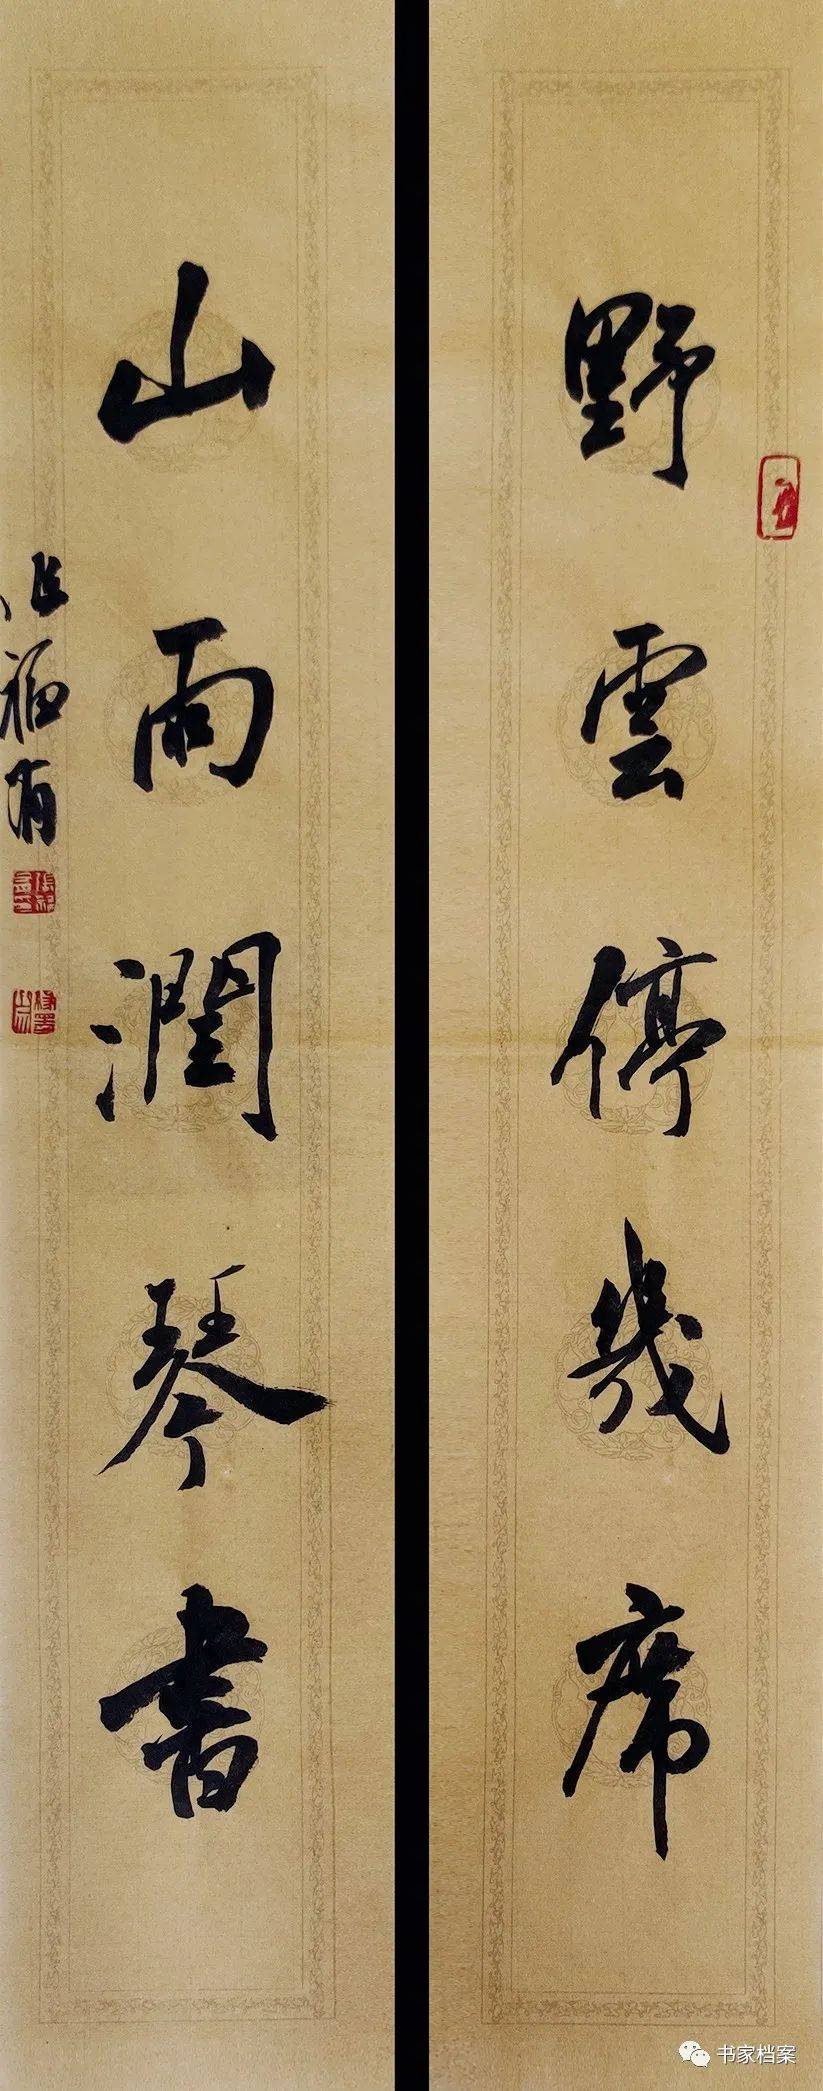 野雲停幾席
山雨潤琴書
張福有
书家档案